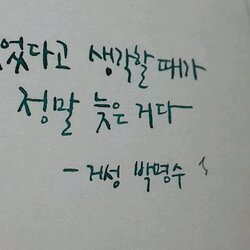 었다고 생각할 때가
정말 늦은 거다
- 거성 박명수